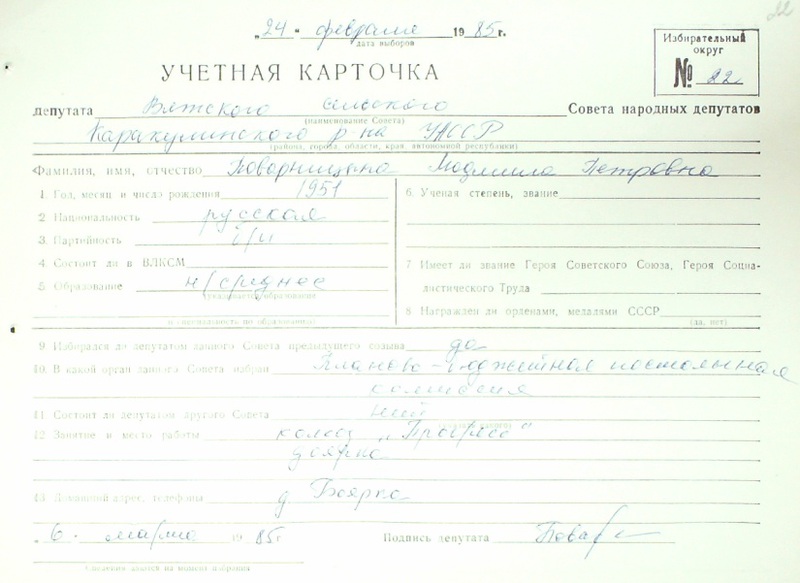 22
„24“ февраля 1985 г.
дата выборов
Избирательный
округ
№ 22
УЧЕТНАЯ КАРТОЧКА
депутата Вятского сельского Совета народных депутатов
(наименование Совета)
Каракулинского р-на УАССР
(района, города, области, края, автономной республики)
Фамилия, имя, отчество Поварницена Людмила Петровна
1 Год, месяц и число рождения 1951
2 Национальность русская
3 Партийность б/п
4 Состоит ли в ВЛКСМ
5 Образование н/среднее
(указывается образование
и специальность по образованию)
6 Ученая степень, звание
7 Имеет ли звание Героя Советского Союза, Героя Социа-
листического Труда
8 Награжден ли орденами, медалями СССР
(да, нет)
9 Избирался ли депутатом данного Совета предыдущего созыва да
10 В какой орган данного Совета избран Планово-бюджетная постоянная
комиссия
11 Состоит ли депутатом другого Совета
12 Занятие и место работы колхоз „Прогресс“
доярка
13 Домашний адрес, телефоны д. Боярка
„6“ марта 1985 г Подпись депутата Повар
Сведения даются на момент избрания